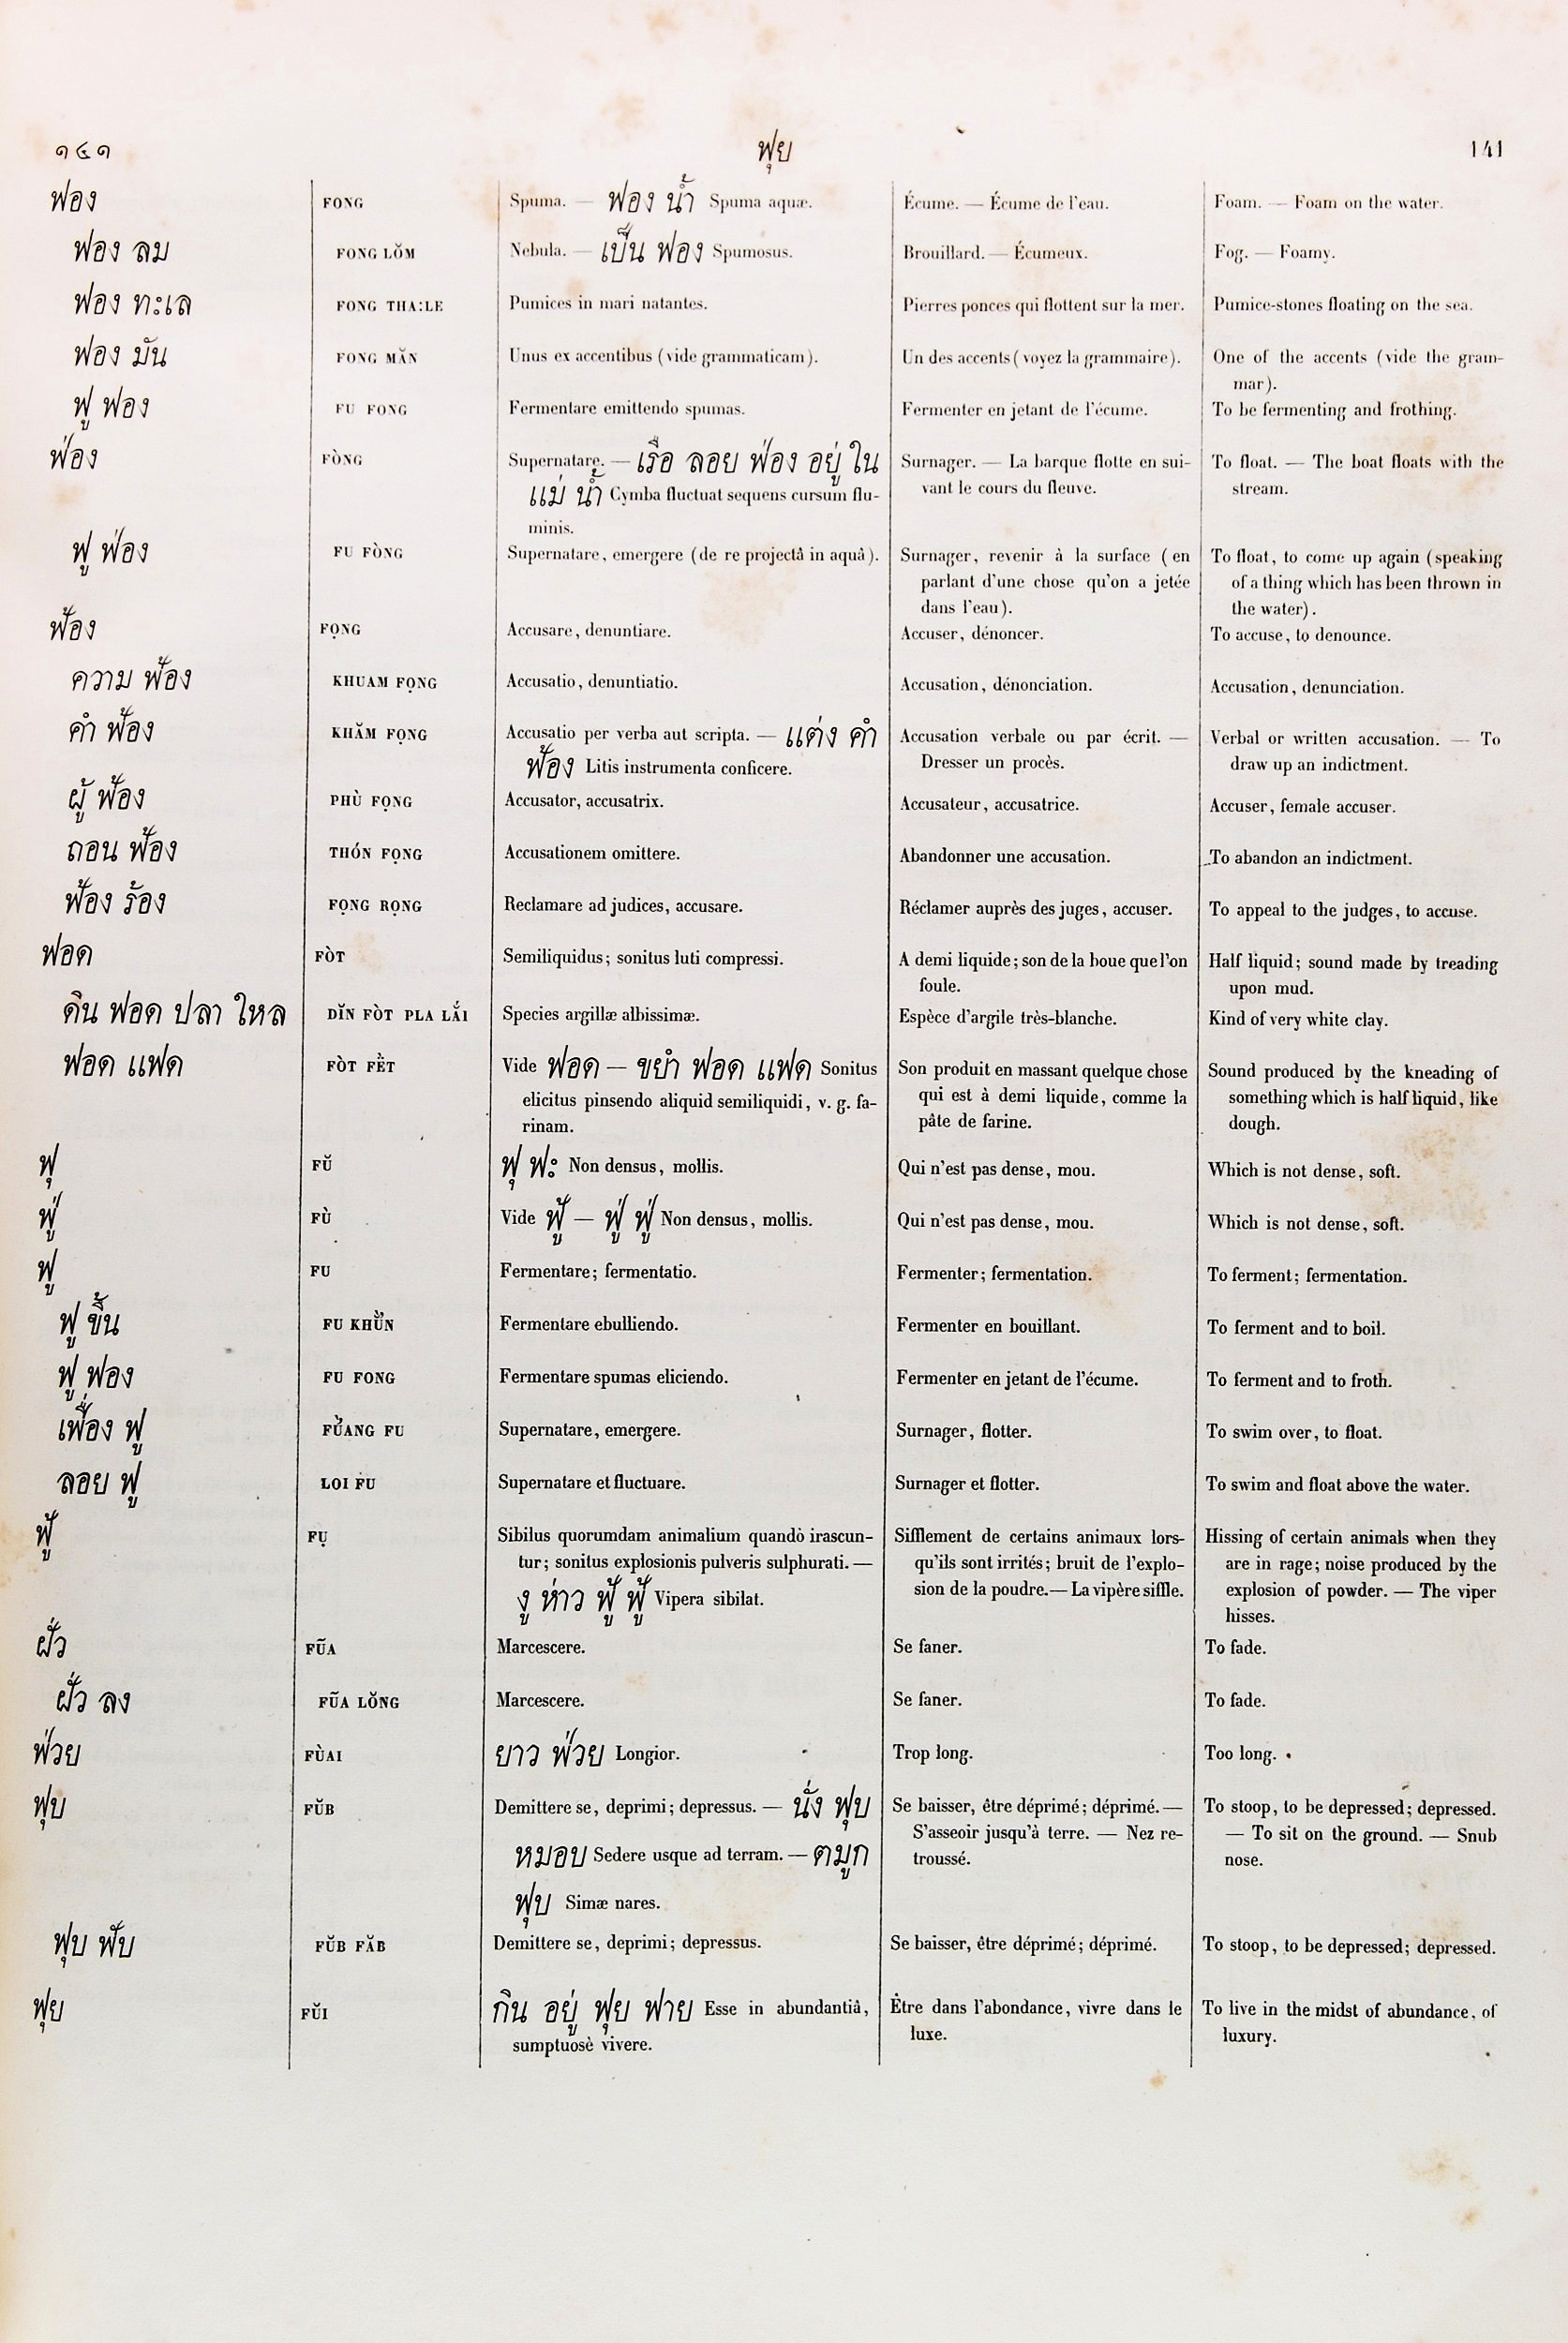 ๑๔๑ ฟุย 141
ฟอง FONG Spuma. — ฟอง น้ำ Spuma aquæ. Écume. — Écume de l'eau. Foam. — Foam on the water.
ฟอง ลม FONG LŎM Nebula. — เป็น ฟอง Spumosus. Brouillard. — Écumeux. Fog. — Foamy.
ฟอง ทะเล FONG THA:LE Pumices in mari natantes. Pierres ponces qui flottent sur la mer. Pumice-stones floating on the sea.
ฟอง มัน FONG MĂN Unus ex accentibus (vide grammaticam). Un des accents (voyez la grammaire). One of the accents (vide the gram-
mar).
ฟู ฟอง FU FONG Fermentare emittendo spumas. Fermenter en jetant de l'écume. To be fermenting and frothing.
ฟ่อง FÒNG Supernatare. — เรือ ลอย ฟ่อง อยู่ ใน Surnager. — La barque flotte en sui- To float. — The boat floats with the
แม่ น้ำ Cymba fluctuat sequens cursum flu- vant le cours du fleuve. stream.
minis.
ฟู ฟ่อง FU FÒNG Supernatare, emergere (de re projectâ in aquâ). Surnager, revenir à la surface (en To float, to come up again (speaking
parlant d'une chose qu'on a jetée of a thing which has been thrown in
dans l'eau). the water).
ฟ้อง FỌNG Accusare, denuntiare. Accuser, dénoncer. To accuse, to denounce.
ความ ฟ้อง KHUAM FỌNG Accusatio, denuntiatio. Accusation, dénonciation. Accusation, denunciation.
คำ ฟ้อง KHĂM FỌNG Accusatio per verba aut scripta. — แต่ง คำ Accusation verbale ou par écrit. — Verbal or written accusation. — To
ฟ้อง Litis instrumenta conficere. Dresser un procès. draw up an indictment.
ผู้ ฟ้อง PHÙ FỌNG Accusator, accusatrix. Accusateur, accusatrice. Accuser, female accuser.
ถอน ฟ้อง THÓN FỌNG Accusationem omittere. Abandonner une accusation. To abandon an indictment.
ฟ้อง ร้อง FỌNG RỌNG Reclamare ad judices, accusare. Réclamer auprès des juges, accuser. To appeal to the judges, to accuse.
ฟอด FÒT Semiliquidus; sonitus luti compressi. A demi liquide; son de la boue que l'on Half liquid; sound made by treading
foule. upon mud.
ดิน ฟอด ปลา ใหล DĬN FÒT PLA LẮI Species argillæ albissimæ. Espèce d'argile très-blanche. Kind of very white clay.
ฟอด แฟด FÒT FẼT Vide ฟอด — ขยำ ฟอด แฟด Sonitus Son produit en massant quelque chose Sound produced by the kneading of
elicitus pinsendo aliquid semiliquidi, v. g. fa- qui est à demi liquide, comme la something which is half liquid, like
rinam. pâte de farine. dough.
ฟุ FŬ ฟุ ฟะ Non densus, mollis. Qui n'est pas dense, mou. Which is not dense, soft.
ฟู่ FÙ Vide ฟู้ — ฟู่ ฟู่ Non densus, mollis. Qui n'est pas dense, mou. Which is not dense, soft.
ฟู FU Fermentare; fermentatio. Fermenter; fermentation. To ferment; fermentation.
ฟู ขึ้น FU KHỪN Fermentare ebulliendo. Fermenter en bouillant. To ferment and to boil.
ฟู ฟอง FU FONG Fermentare spumas eliciendo. Fermenter en jetant de l'écume. To ferment and to froth.
เฟื่อง ฟู FỪANG FU Supernatare, emergere. Surnager, flotter. To swim over, to float.
ลอย ฟู LOI FU Supernatare et fluctuare. Surnager et flotter. To swim and float above the water.
ฟู้ FỤ Sibilus quorumdam animalium quandò irascun- Sifflement de certains animaux lors- Hissing of certain animals when they
tur; sonitus explosionis pulveris sulphurati. — qu'ils sont irrités; bruit de l'explo- are in rage; noise produced by the
งู ห่าว ฟู้ ฟู้ Vipera sibilat. sion de la poudre.— La vipère siffle. explosion of powder. — The viper
hisses.
ฝั่ว FŨA Marcescere. Se faner. To fade.
ฝั่ว ลง FŨA LŎNG Marcescere. Se faner. To fade.
ฟ่วย FÙAI ยาว ฟ่วย Longior. Trop long. Too long.
ฟุบ FŬB Demittere se, deprimi; depressus. — นั่ง ฟุบ Se baisser, être déprimé; déprimé. — To stoop, to be depressed; depressed.
หมอบ Sedere usque ad terram. — ตมูก S'asseoir jusqu'à terre. — Nez re- — To sit on the ground. — Snub
ฟุบ Simæ nares. troussé. nose.
ฟุบ ฟับ FŬB FĂB Demittere se, deprimi; depressus. Se baisser, être déprimé; déprimé. To stoop, to be depressed; depressed.
ฟุย FŬI กิน อยู่ ฟุย ฟาย Esse in abundantiâ, Être dans l'abondance, vivre dans le To live in the midst of abundance, of
sumptuosè vivere. luxe. luxury.